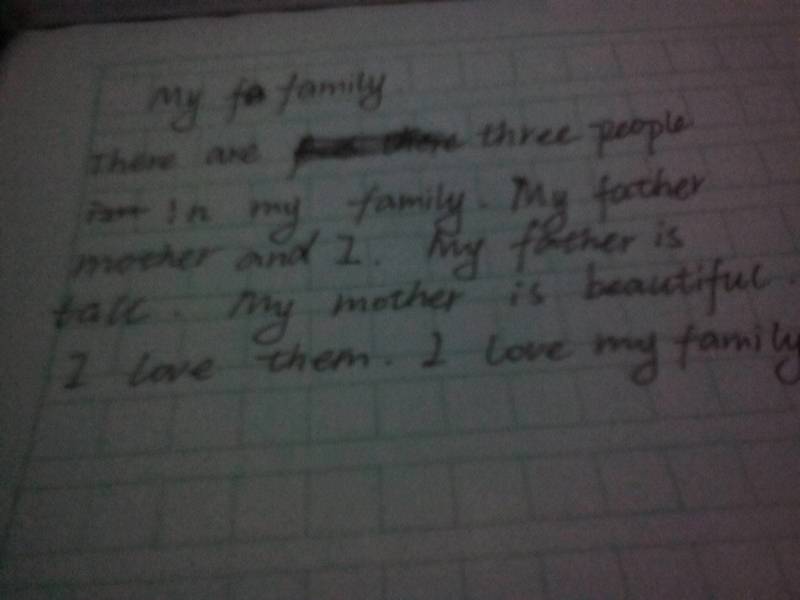 My fa family
There are three people
in my family. My father
mother and I. My father is
tall. My mother is beautiful.
I love them. I love my family